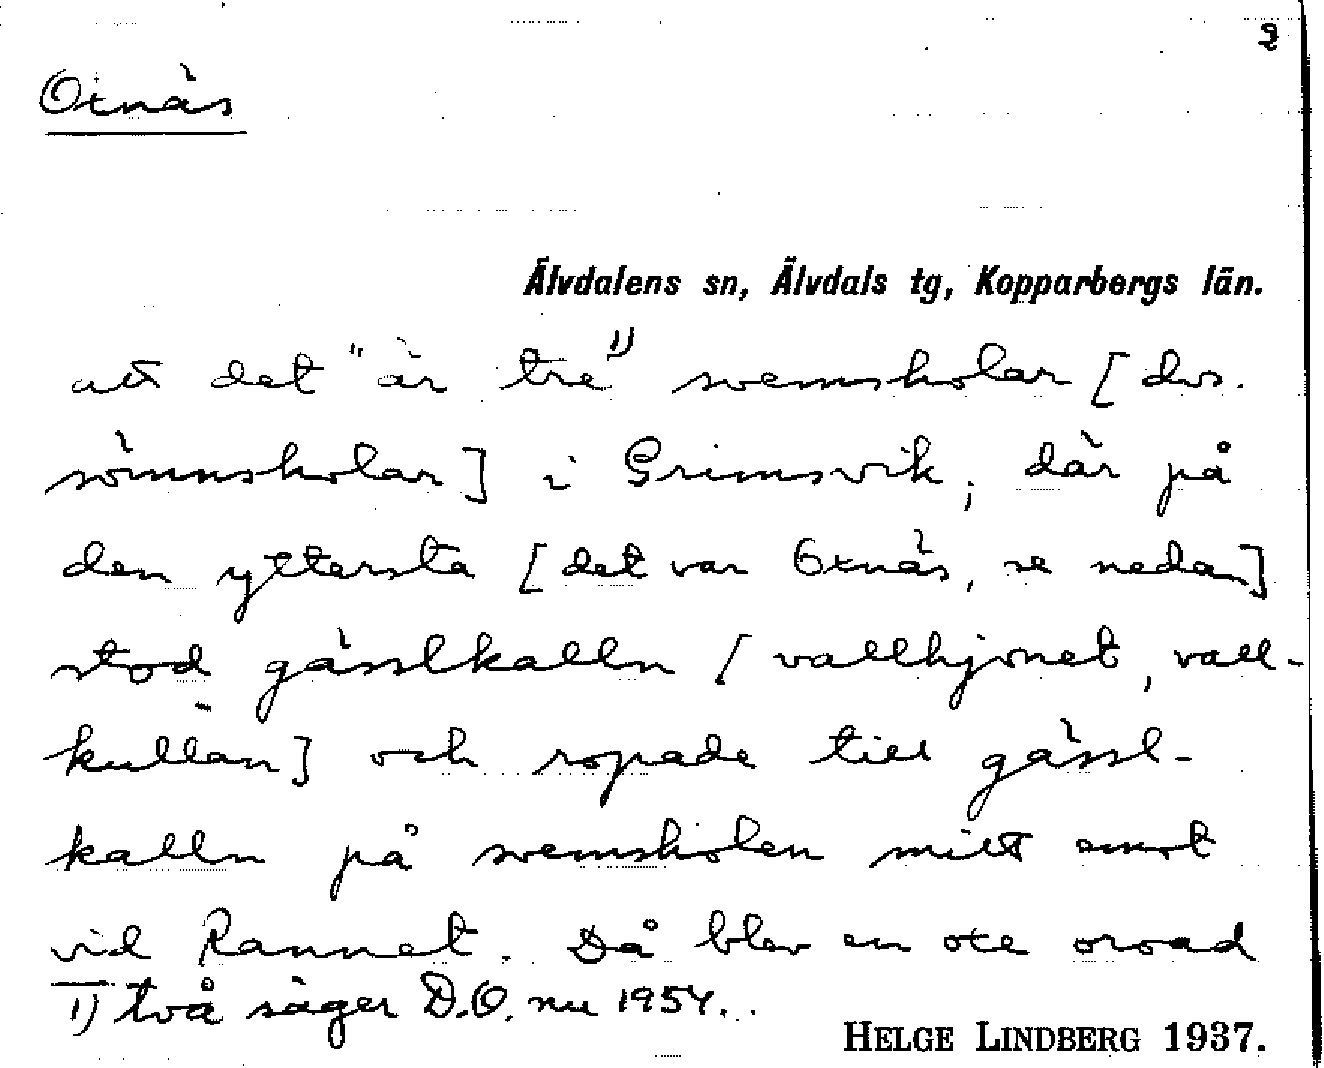 2
Oxnäs
Älvdalens sn, Älvdals tg, Kopparbergs län.
att det "är tre" 1) svemsholar [dvs.
sömnsholar] i Grimsvik, där på
den yttersta [det var Oxnäs, se nedan]
stod gässlkalln [vallhjonet, vall-
kullan] och ropade till gässl-
kalln på svemsholen mitt emot
vid Rannet. Då blev en oxe oroad
1) två säger D.O. nu 1954.
HELGE LINDBERG 1937.